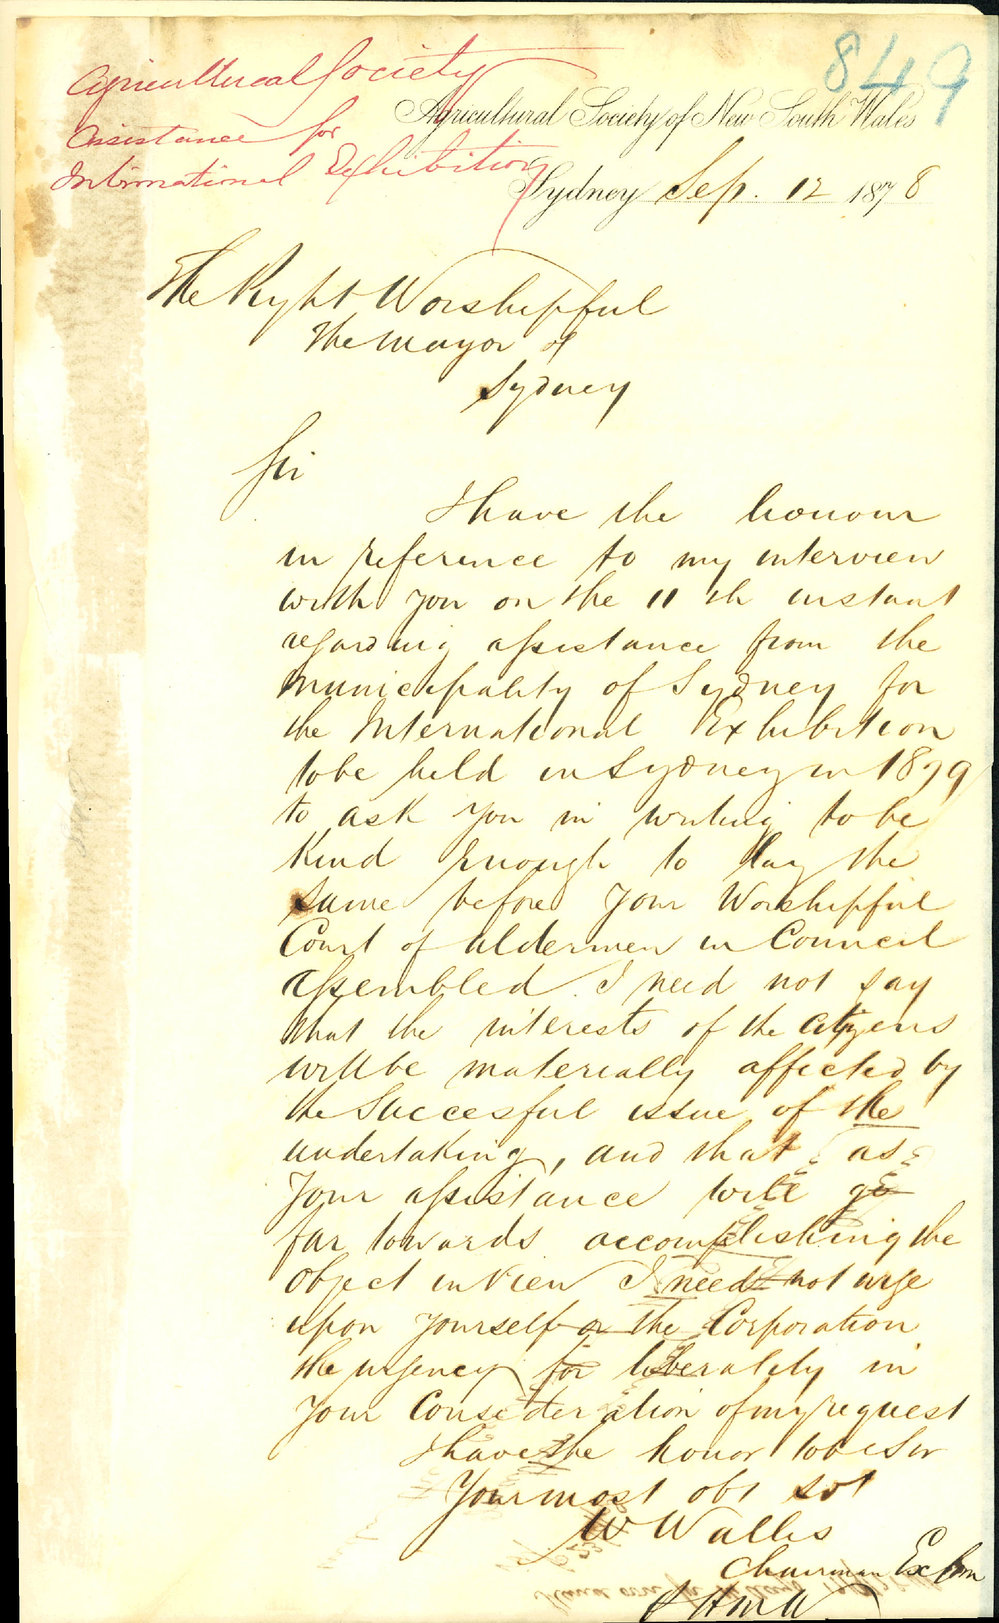 849
Agricultural Society
Assistance for
International Exhibition
Agricultural Society of New South Wales
Sydney Sep. 12 1878
The Right Worshipful
The Mayor of
Sydney
Sir
I have the honour
in reference to my interview
with you on the 11th instant
regarding assistance from the
Municipality of Sydney for
the International Exhibition
to be held in Sydney in 1879
to ask you in writing to be
kind enough to lay the
same before your Worshipful
Court of aldermen in Council
assembled. I need not say
that the interests of the citizens
will be materially affected by
the Succesful issue of the
undertaking, and that as
Your assistance will go
far towards accomplishing the
object in view I need not urge
upon yourself or the Corporation
the urgency for liberality in
your Consideration of my request
I have the honor to be Sir
Your most obt svt
W Wallis
Chairman Ex Com